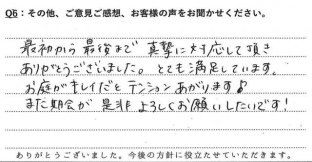 Q6：その他、ご意見ご感想、お客様の声をお聞かせください。
最初から最後まで 真摯に対応して頂き
ありがとうございました。とても満足しています。
お庭がキレイだと テンションあがります♪
また機会が 是非よろしくお願いしたいです！
ありがとうございました。今後の方針に役立たせていただきます。